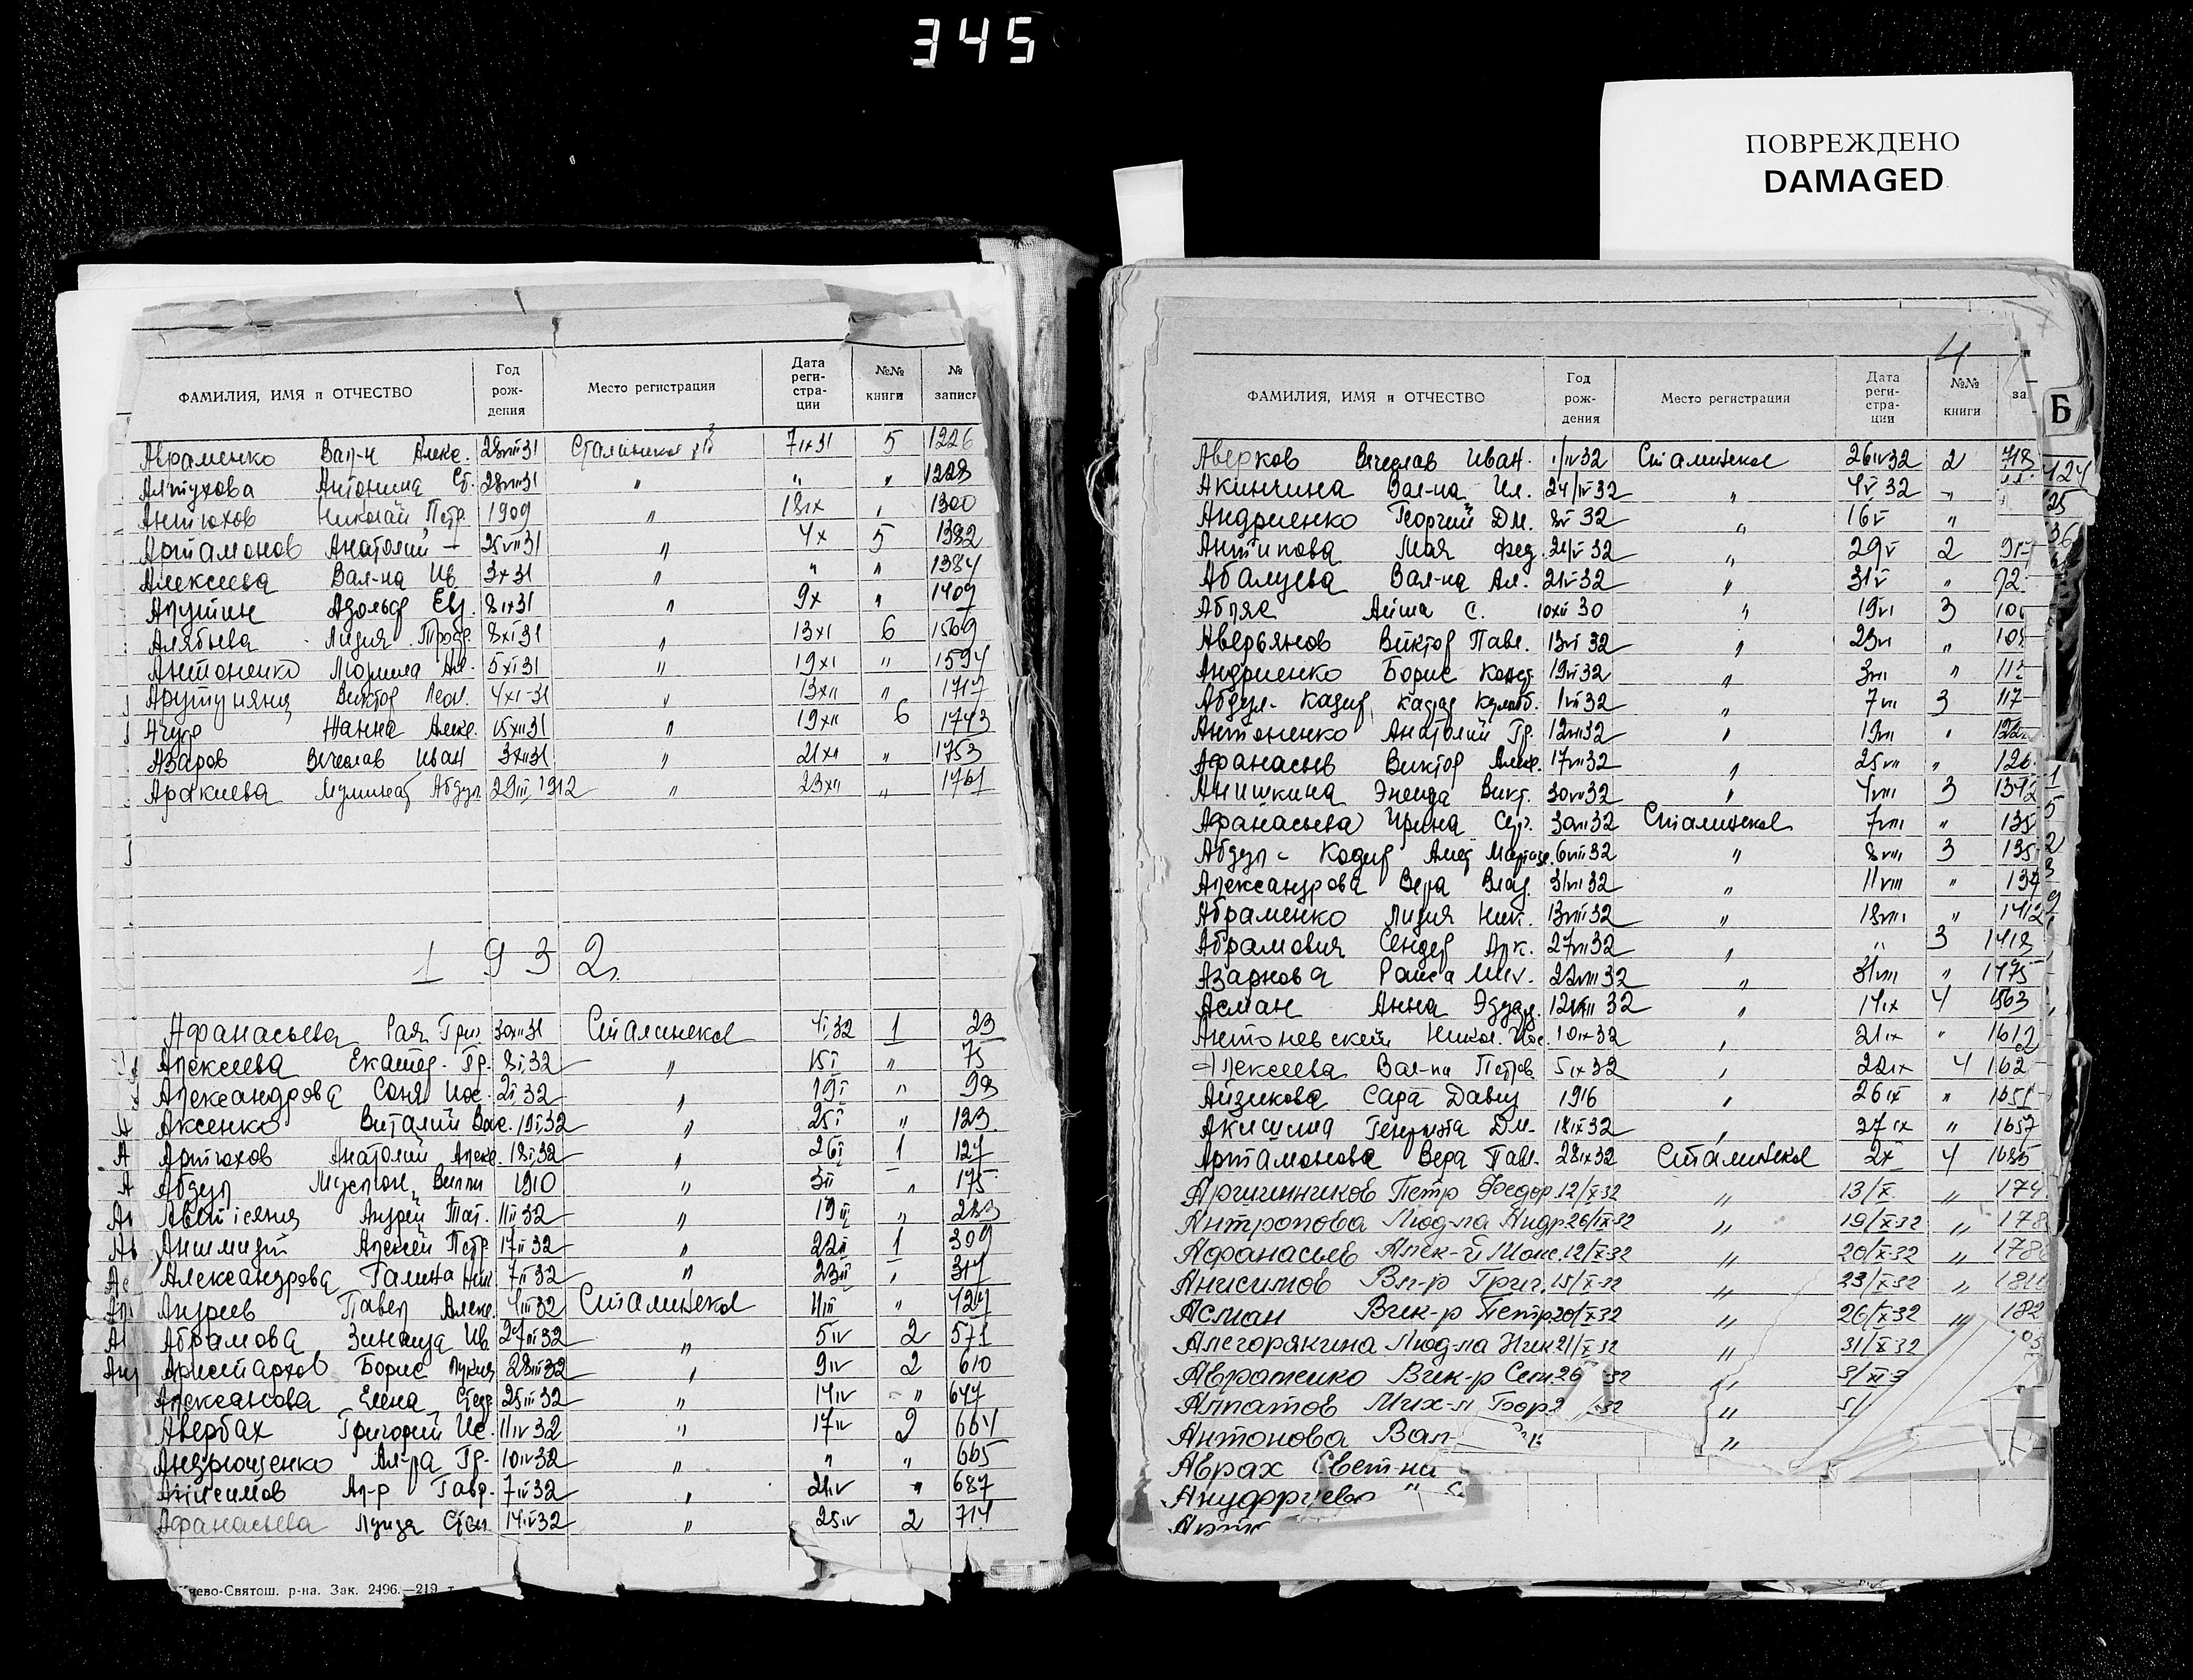 345
ПОВРЕЖДЕНО
DAMAGED
ФАМИЛИЯ, ИМЯ и ОТЧЕСТВО Год рождения Место регистрации Дата регистрации №№ книги № запис
Авраменко Вал-н Алекс. 28VIII31 7IX31 5 1226
Алтухова Антонина 28VIII31 " " " 1228
Антюхов Николай Петр. 1909 " 18IX " 1300
Артамонов Анатолий — 25VII31 " 4X 5 1382
Алексеева Вал-на Ив 3X31 " " " 1384
Адольф Евг. 8IX31 " 9X " 1409
Алябьева Лидия Троф. 8XI31 " 13XI 6 1569
Антоненко Людмила Ал. 5XI31 " 19XI " 1594
Арутунянц Виктор Леон. 4XI-31 " 13XII " 1717
Жанна Алекс. 15XII31 " 19XII 6 1743
Азаров Вячеслав Иван 3XII31 " 21XII " 1753
Аракиева Абдул 29III 1912 " 23XII " 1761
1932г.
Афанасьева Рая Григ. 30XII31 Сталинска 4I32 1 23
Алексеева Екатер. Гр. 8I32 " 15I " 75
Александрова Соня Иос. 2I32 " 19I " 98
Аксенко Виталий Вас. 19I32 " 25I " 123
Артюхов Анатолий Алекс. 18I32 " 26I 1 127
Абдул 1910 " 3II " 175
Андрей 11II32 " 19II "
Алексей Петр. 17II32 " 22II 1 309
Александрова Галина Ник 7II32 " 23II " 317
Андреев Павел Алекс. 4III32 Сталинска "
Абрамова Зинаида Ив. 27III32 " 5IV 2 571
Аристархов Борис 28III32 " 9IV 2 610
Алексанова Елена 25III32 " 14IV " 647
Авербах Григорий Ис. 11IV32 " 17IV 2 664
Андрющенко Ал-ра Гр. 10IV32 " " " 665
Анисимов Ал-р Гавр. 7IV32 " 21IV " 687
Афанасьева Луиза Степ 14IV32 " 25IV 2 714
иево-Святош. р-на. Зак. 2496.—219 т
4
ФАМИЛИЯ, ИМЯ и ОТЧЕСТВО Год рождения Место регистрации Дата регистрации №№ книги за
Б
Аверков Вячеслав Иван. 1/IV32 Сталинска 26IV32 2 718
Акинчина Вал-на Ил. 24/IV32 " 4V32 "
Андриенко Георгий Дм. 8V32 " 16V "
Антипова Мая Фед. 21/V32 " 29V 2
Абалуева Вал-на Ал. 21V32 " 31V "
Аиша С. 10XII30 " 19VI 3
Аверьянов Виктор Павл. 13VI32 " 23VI "
Андриенко Борис Конст. 19VI32 " 3VII "
Абдул-Кадыр 1VII32 " 7VII 3 117
Антоненко Анатолий Гр. 12VII32 " 19VII " 122
Афанасьев Виктор Алекс. 17VII32 " 25VII " 126
Анишкина Викт. 30VII32 " 4VIII 3 1342
Афанасьева Ирина Серг. 30VII32 Сталинска 7VIII " 135
Абдул-Кадыр 6VIII32 " 8VIII 3 135
Александрова Вера Влад. 31VII32 " 11VIII "
Абраменко Лидия Ник. 13VIII32 " 18VIII " 1412
Абрамович Сендер Арк. 27VII32 " " 3 1418
Азаркова Раиса Мих. 22VIII32 " 31VIII " 1475
Асман Анна Эдуард. 12VIII32 " 14IX 4 1563
Антоневский Никол. Иос. 10IX32 " 21IX " 1612
Алексеева Вал-на Петров 5IX32 " 22IX 4 162
Айзикова Сара Давид 1916 " 26IX " 1651
Акишина Генриета Дм. 18IX32 " 27IX " 1657
Артамонова Вера Павл. 28IX32 Сталинска 2X 4 1685
Аршинников Петр Федор. 12/X32 " 13/X. " 174
Антропова Люд-ла Андр. 26/IX-32 " 19/X-32 " 178
Афанасьев Алек-й Моис. 12/X-32 " 20/X-32 " 178
Анисимов Вл-р Григ. 15/X-32 " 23/X-32 " 181
Асман Вик-р Петр. 20/X-32 " 26/X-32 " 182
Алегорякина Люд-ла Ник 21/X-32 " 31/X-32
Авраменко Вик-р Сем. 26 32 " 3/XI-3
Алпатов Мих-л Бор 2 32 " 5/
Антонова Вал "
Аврах Свет-на
Ануфриева "